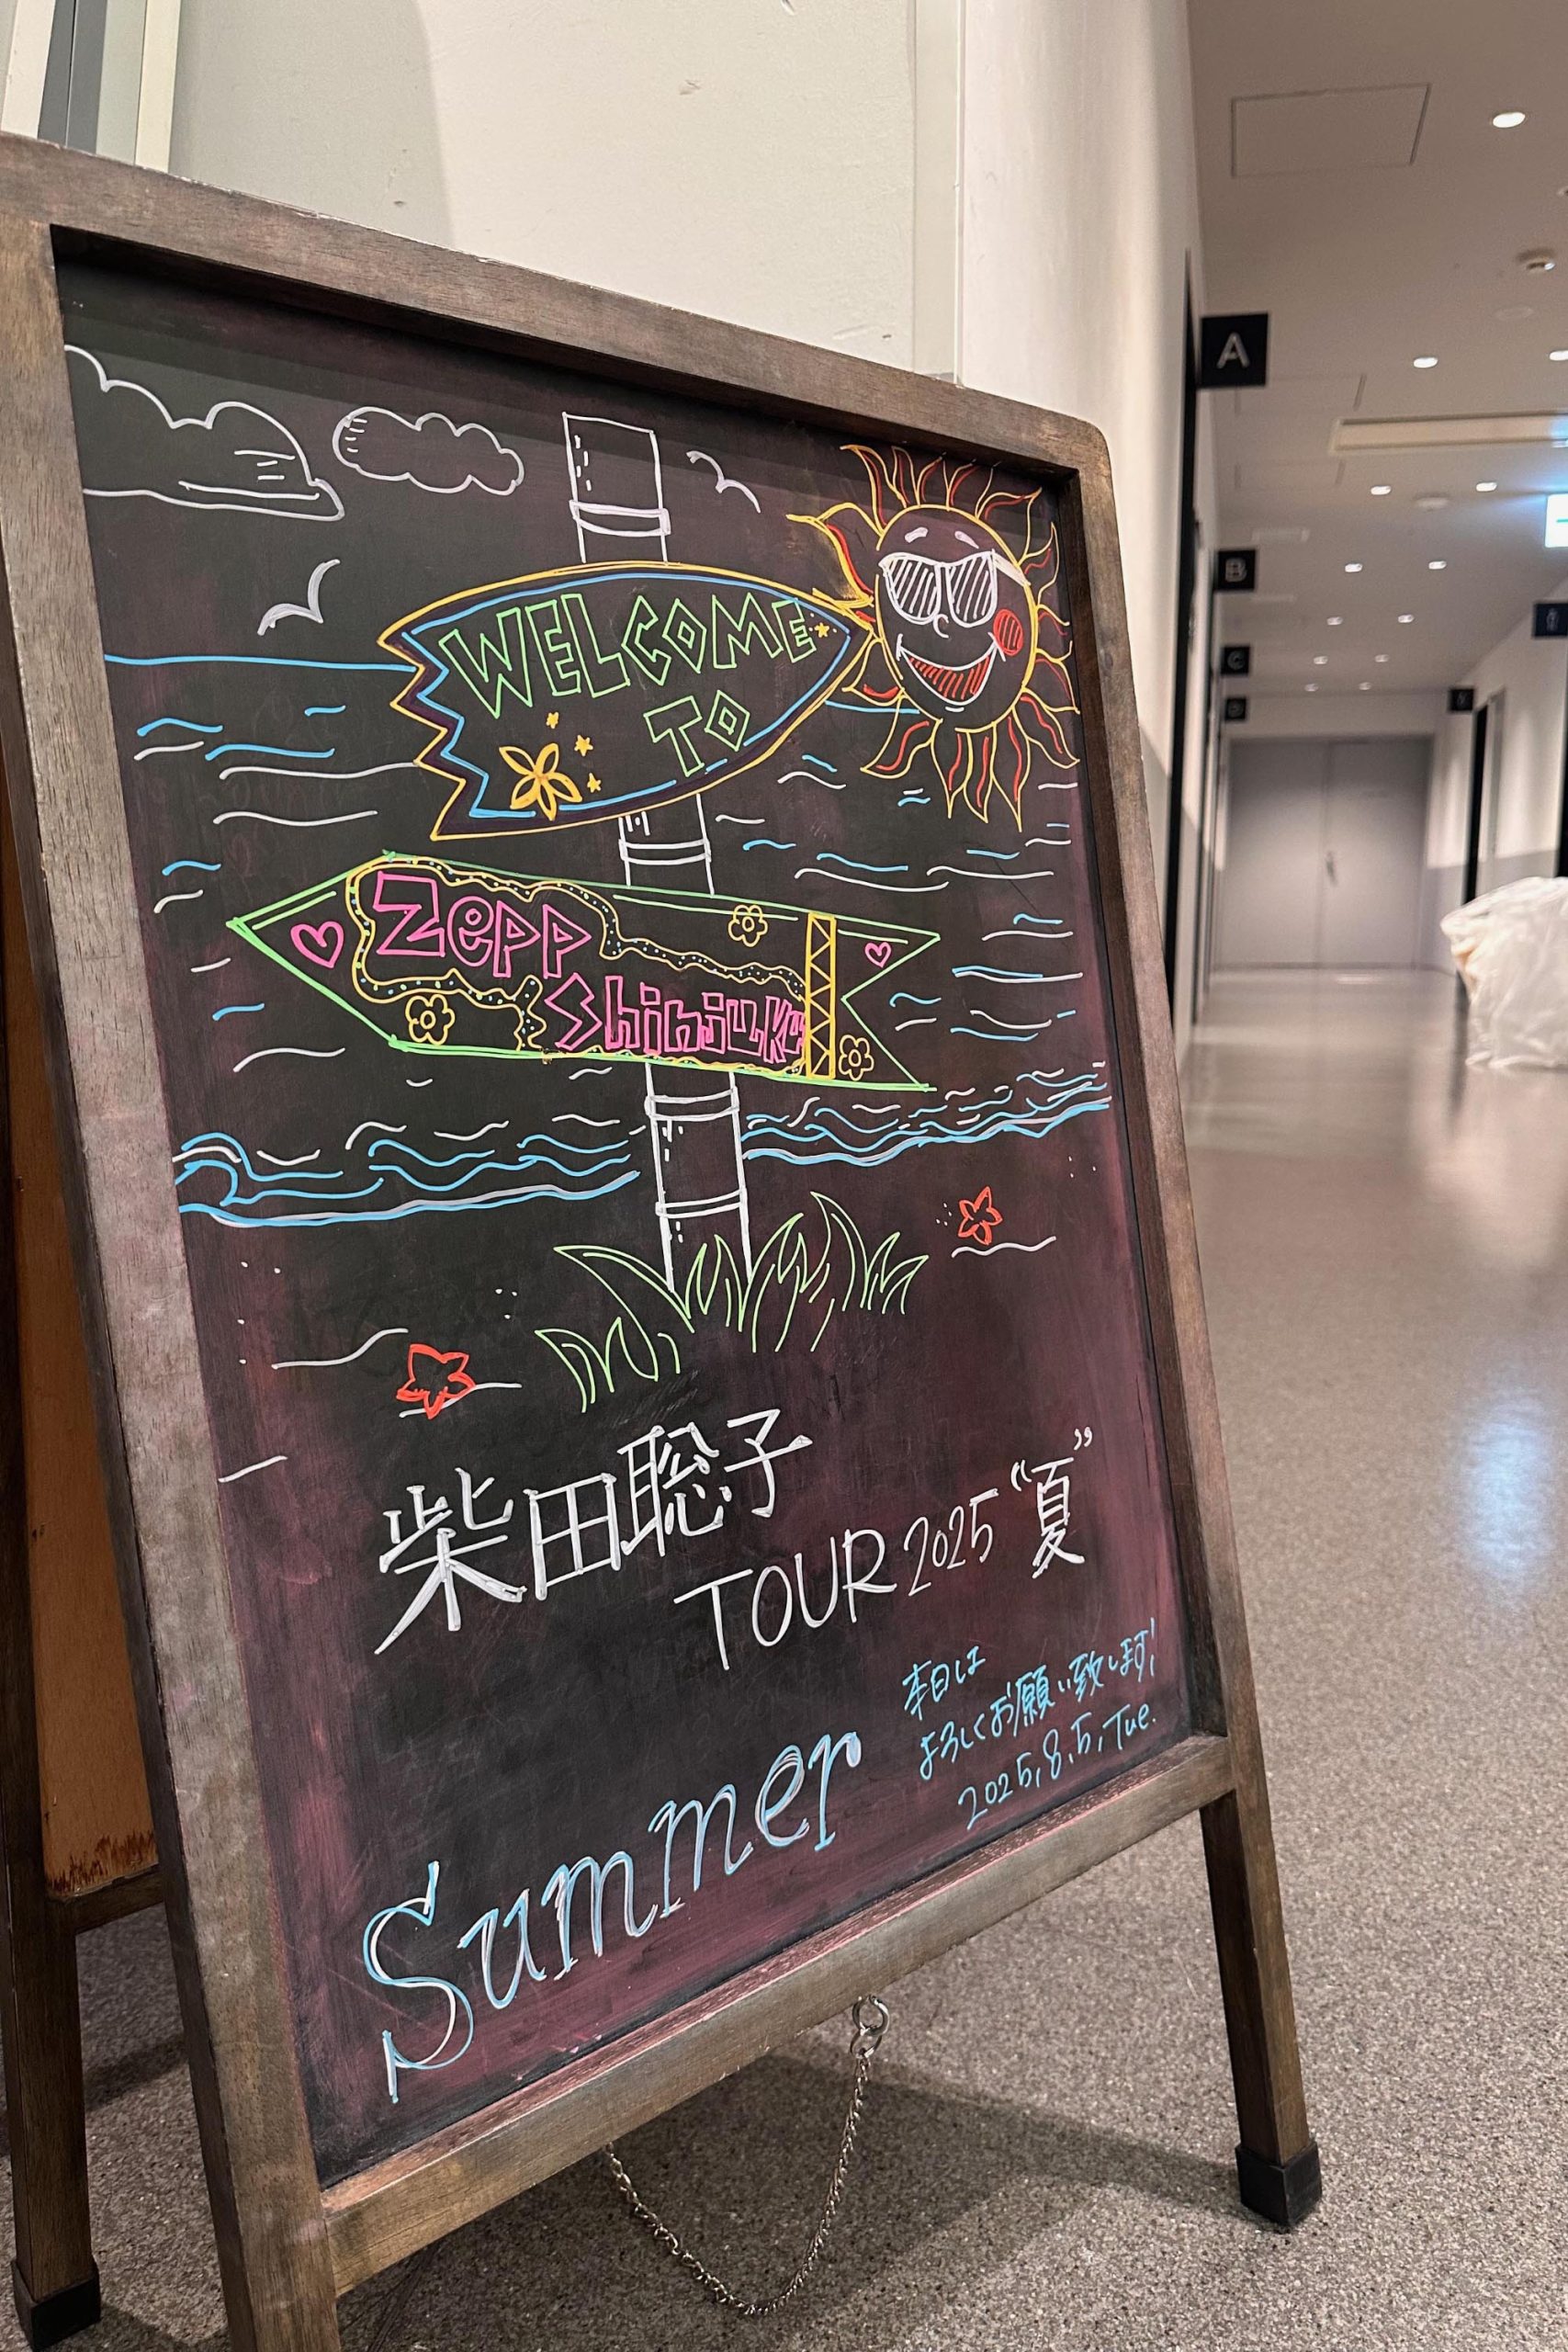 WELCOME
TO
Zepp
Shinjuku
柴田聡子
TOUR 2025 “夏”
本日は
よろしくお願い致します!
2025.8.5.Tue.
Summer
A
B
C